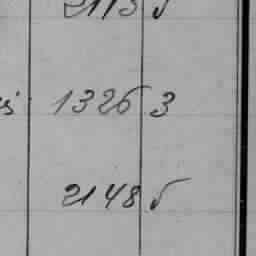 2113 5
1326 3
2148 5